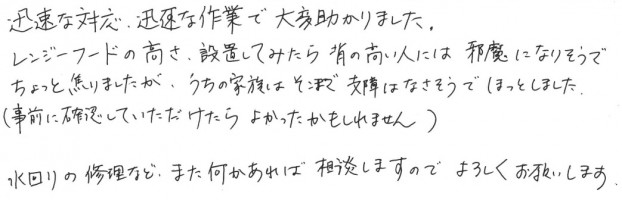 迅速な対応、迅速な作業で大変助かりました。
レンジーフードの高さ、設置してみたら背の高い人には邪魔になりそうで
ちょっと焦りましたが、うちの家族はそこまで支障はなさそうでほっとしました。
(事前に確認していただけたらよかったかもしれません)
水回りの修理など、また何かあれば相談しますのでよろしくお願いします。